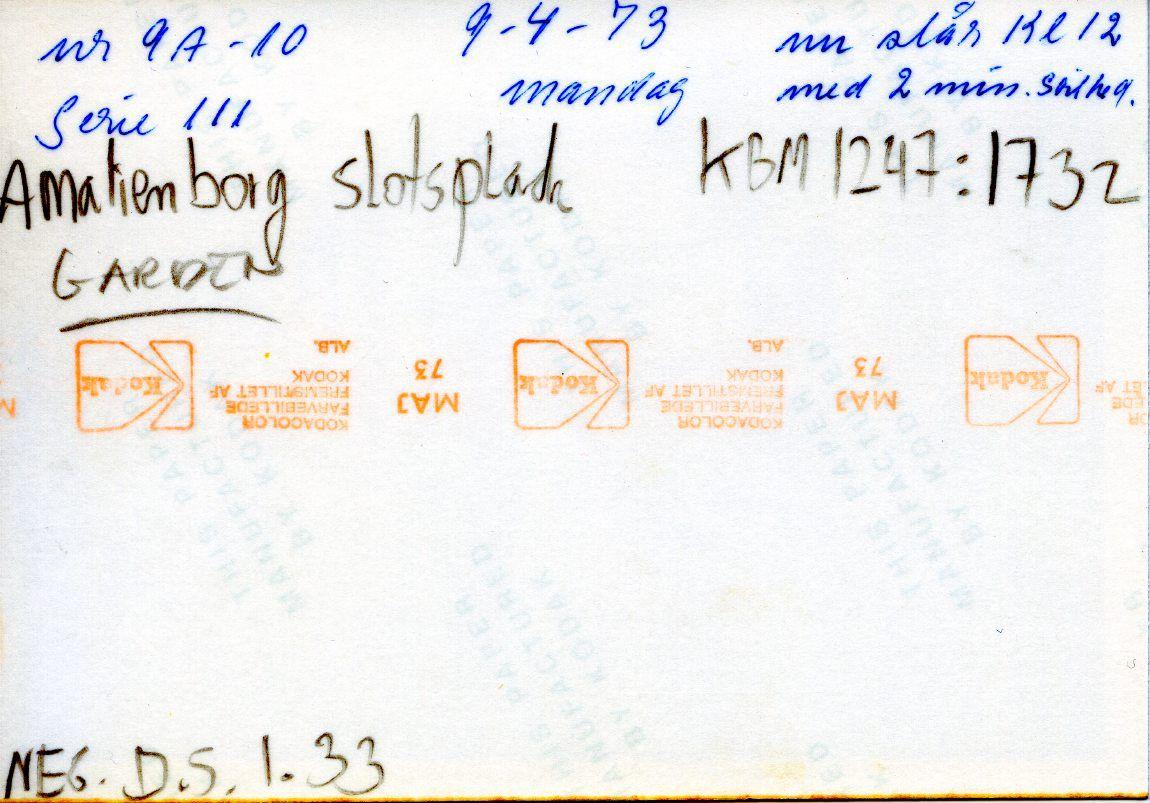 nr 9A-10 9-4-73 nu slår Kl 12
Serie III mandag med 2 min. Stilheq.
Amalienborg slotsplads KBM 1247:1732
GARDEN
Kodak
KODACOLOR
FARVEBILLEDE
FREMSTILLET AF
KODAK
ALB.
MAJ
73
Kodak
KODACOLOR
FARVEBILLEDE
FREMSTILLET AF
KODAK
ALB.
MAJ
73
Kodak
THIS PAPER
MANUFACTURED
BY KODAK
NEG. D.S. 1.33